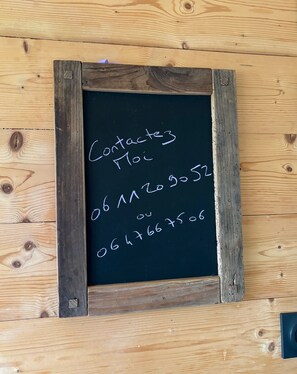 Contactez
Moi
06 11 20 90 52
ou
06 47 66 75 06